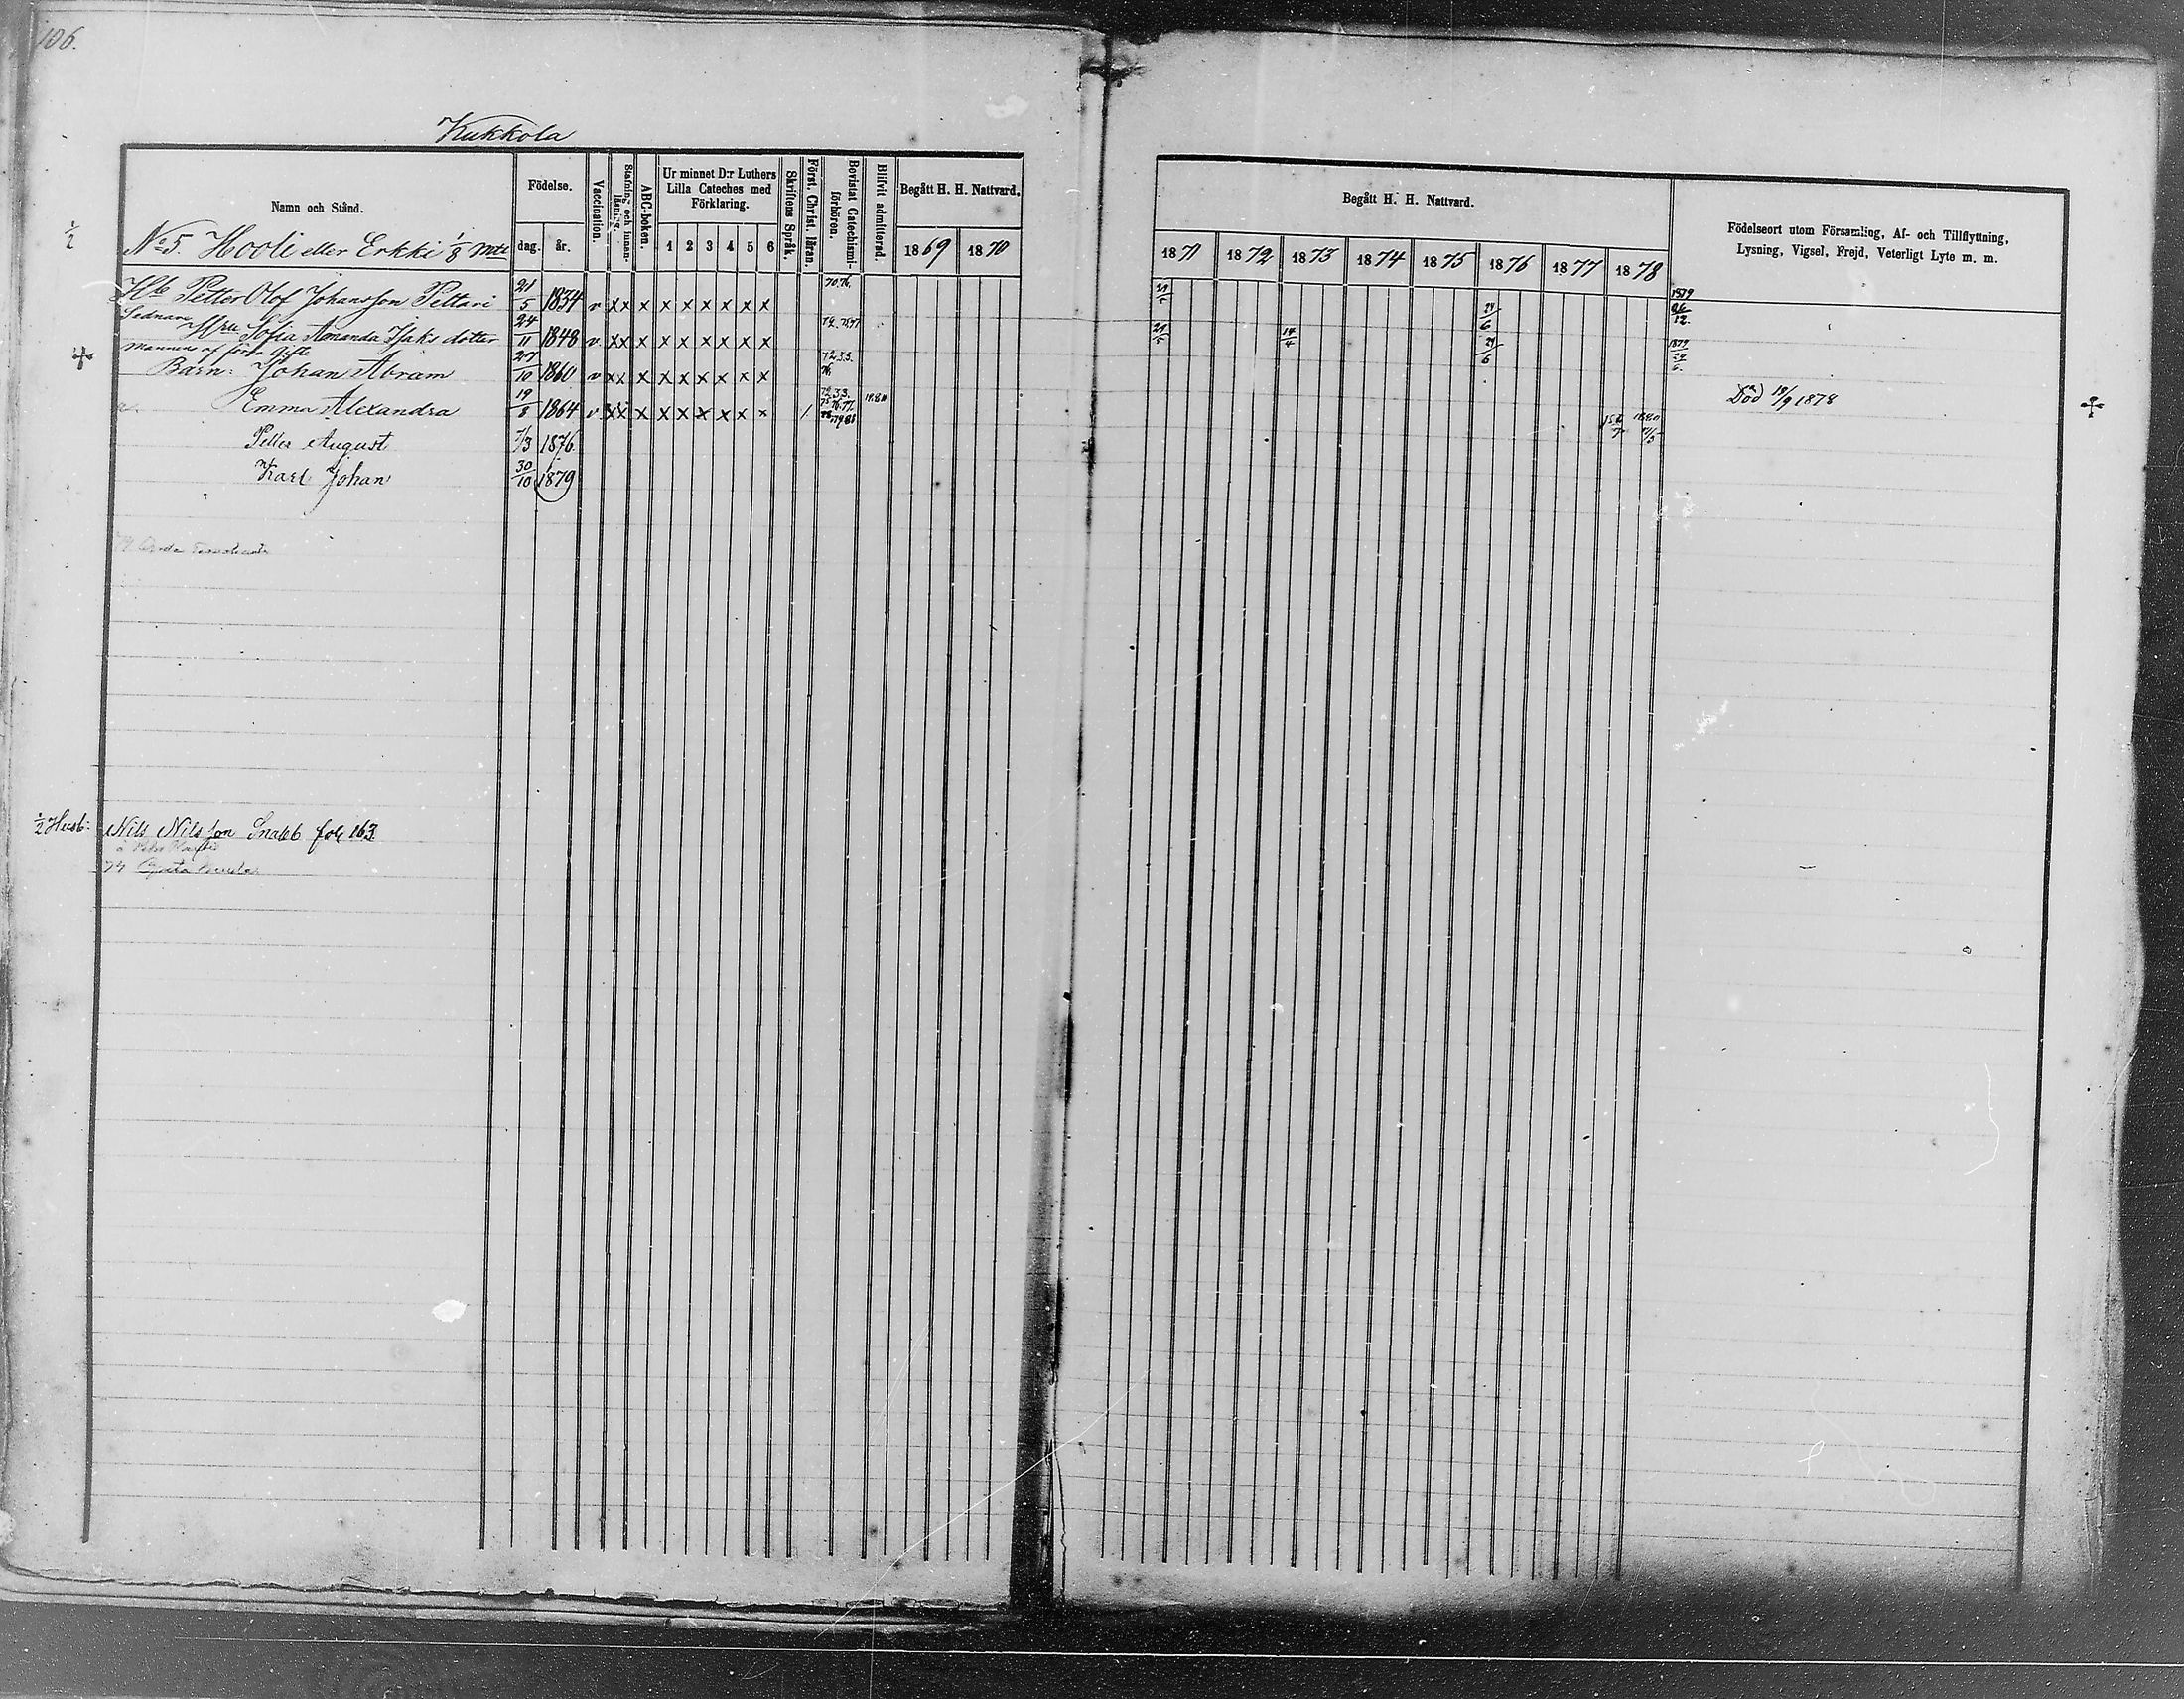 106.
Kukkola
Namn och Stånd.
Födelse.
dag.
år.
Vaccination.
Stafning och innanläsning.
ABC-boken.
Ur minnet D:r Luthers
Lilla Cateches med
Förklaring.
1 2 3 4 5 6
Skriftens Språk.
Först. Christ. läran.
Bevistat Catechismi-
förhören.
Blifvit admitterad.
Begått H. H. Nattvard.
1869 1870
Begått H. H. Nattvard.
1871 1872 1873 1874 1875 1876 1877 1878
Födelseort utom Församling, Af- och Tillflyttning,
Lysning, Vigsel, Frejd, Veterligt Lyte m. m.
1/2
No 5. Hooli eller Erkki 1/8 mtl
Hb Petter Olof Johansson Pelttari 21/5 1834 v x x x x x x x x x 70.76. 21/5 24/6 1879 26/12.
Sednare Hru Sofia Amanda Isaks dotter 24/11 1848 v x x x x x x x x x 21/5 14/4 24/6 1879 24/6.
mannens af förra Gifte
Barn: Johan Abram 27/10 1860 v x x x x x x x x x 72.3.3. 76. Död 19/9 1878
Emma Alexandra 19/8 1864 v x x x x x x x x x 1880
Petter August 7/3 1876.
Karl Johan 30/10 1879
1/2 Husb: Nils Nilsson Snabb fol 163
74